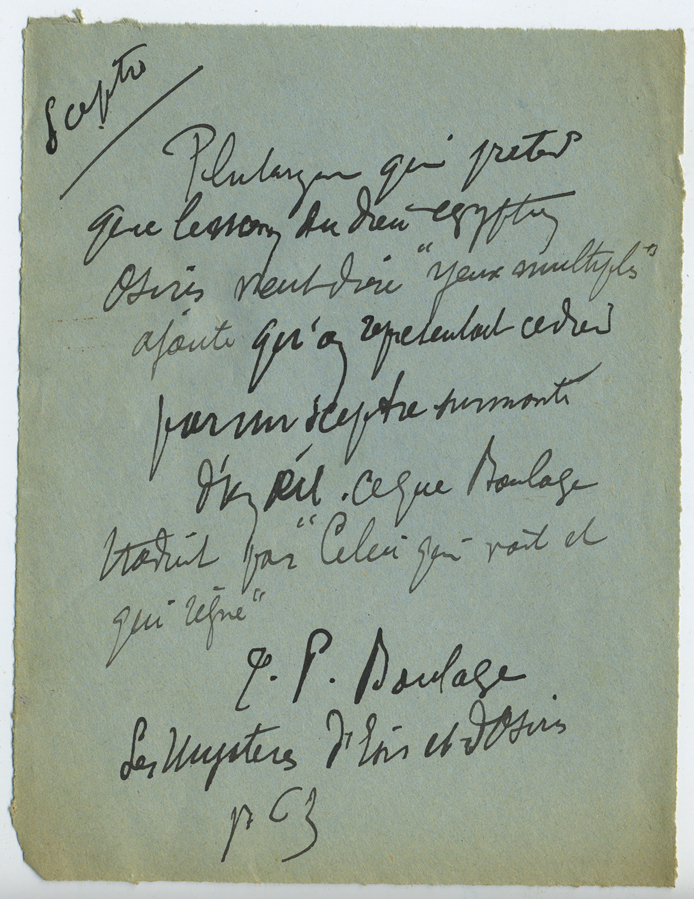 Sceptre
Plutarque qui pretend
que le nom du dieu egyptien
Osiris veut dire "yeux multiples"
ajoute qu'on representait ce dieu
par un sceptre surmonté
d'un œil. ce que Boulage
traduit par "Celui qui voit et
qui règne"
T. P. Boulage
Les Mysteres d'Isis et d'Osiris
p